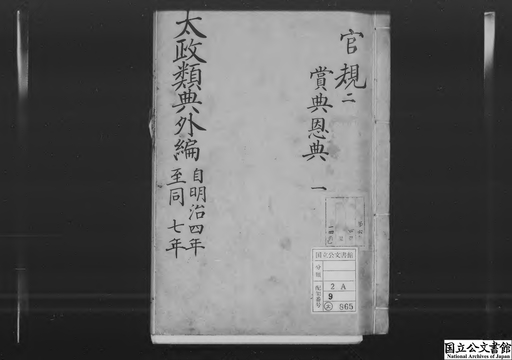 官規二
賞典恩典 一
太政類典外編
自明治四年
至同 七年
国立公文書館
分類
配架番号
2 A
9
965
国立公文書館
National Archives of Japan